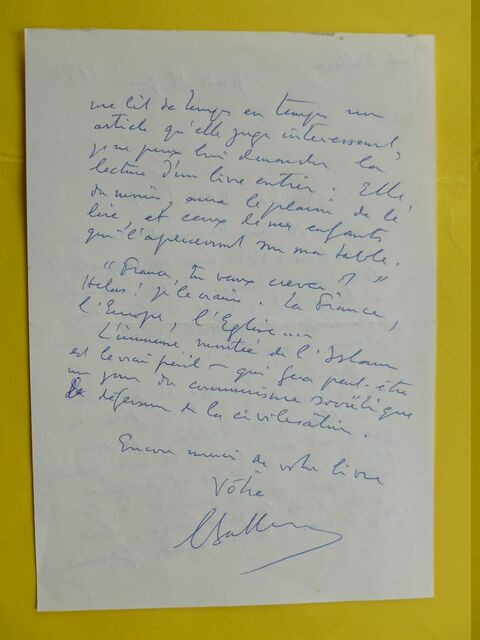 me lit de temps en temps un
article qu'elle juge intéressant,
je ne peux lui demander la
lecture d'un livre entier. Elle,
du moins, aura le plaisir de le
lire, et ceux de mes enfants
qui l'apercevront sur ma table.
"France, tu veux crever ?"
Hélas ! je le crains. La France,
l'Europe, l'Eglise....
L'immense montée de l'Islam
est le vrai péril – qui fera peut-être
un jour du communisme soviétique
le défenseur de la civilisation.
Encore merci de votre livre
Vôtre